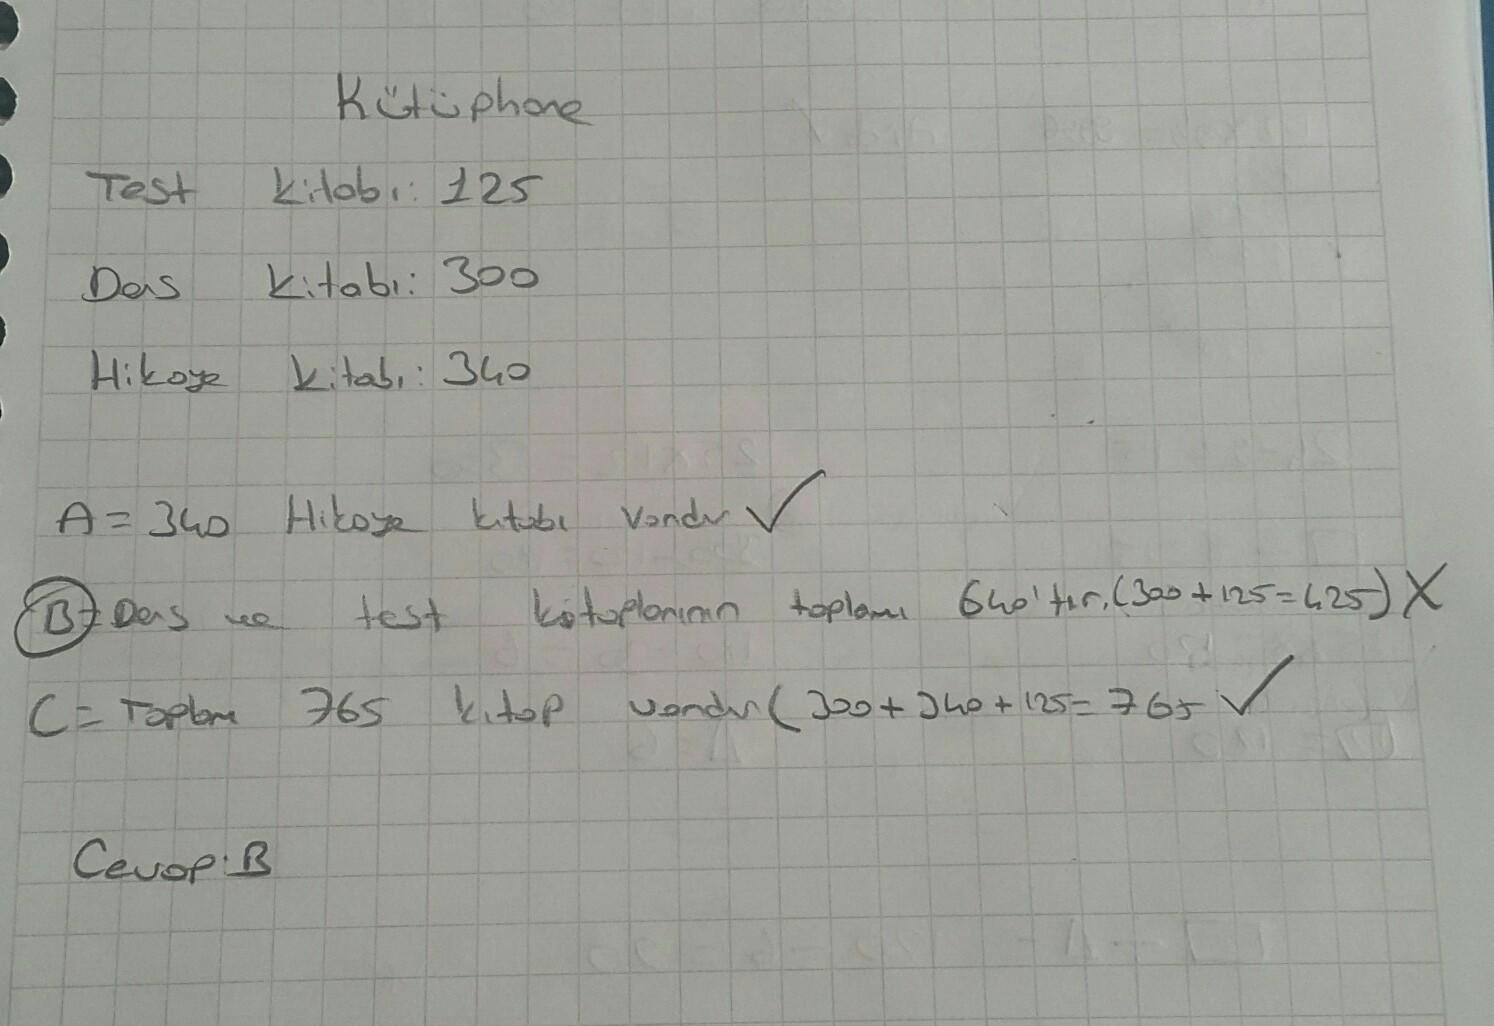 Kütüphane
Test kitabı: 125
Ders kitabı: 300
Hikaye kitabı: 340
A = 340 Hikaye kitabı vardır ✓
B) Ders ve test kitaplarının toplamı 640'tır. (300 + 125 = 425) X
C = Toplam 765 kitap vardır (300 + 340 + 125 = 765 ✓
Cevap: B